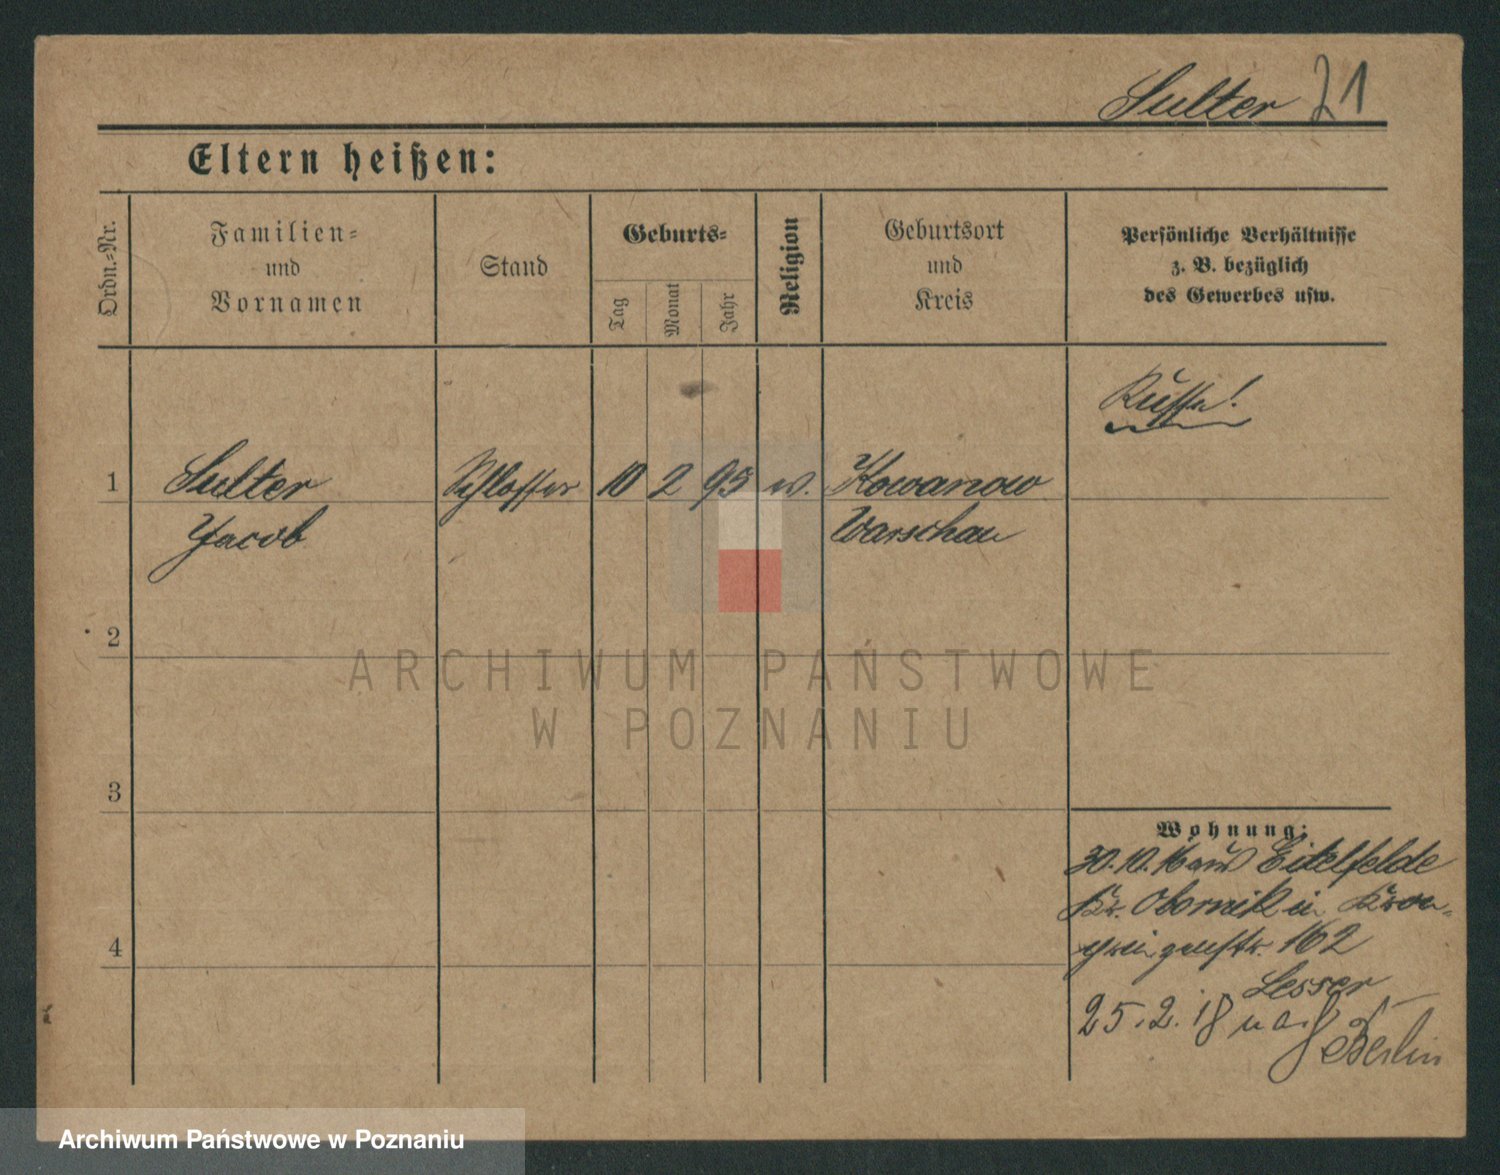 Sulter 21
Eltern heißen:
Ordn.-Nr.
Familien=
und
Vornamen
Stand
Geburts=
Tag
Monat
Jahr
Religion
Geburtsort
und
Kreis
Persönliche Verhältnisse
z. B. bezüglich
des Gewerbes usw.
Russe!
1 Sulter Schlosser 10 2 95 w. Kowanow
Jacob Warschau
2
3
4
Wohnung:
30.10.16 aus Eitelfelde
Kr. Obornik in Kron-
prinzenstr. 162
Lesser
25.2.18 nach Berlin
ARCHIWUM PAŃSTWOWE
W POZNANIU
Archiwum Państwowe w Poznaniu